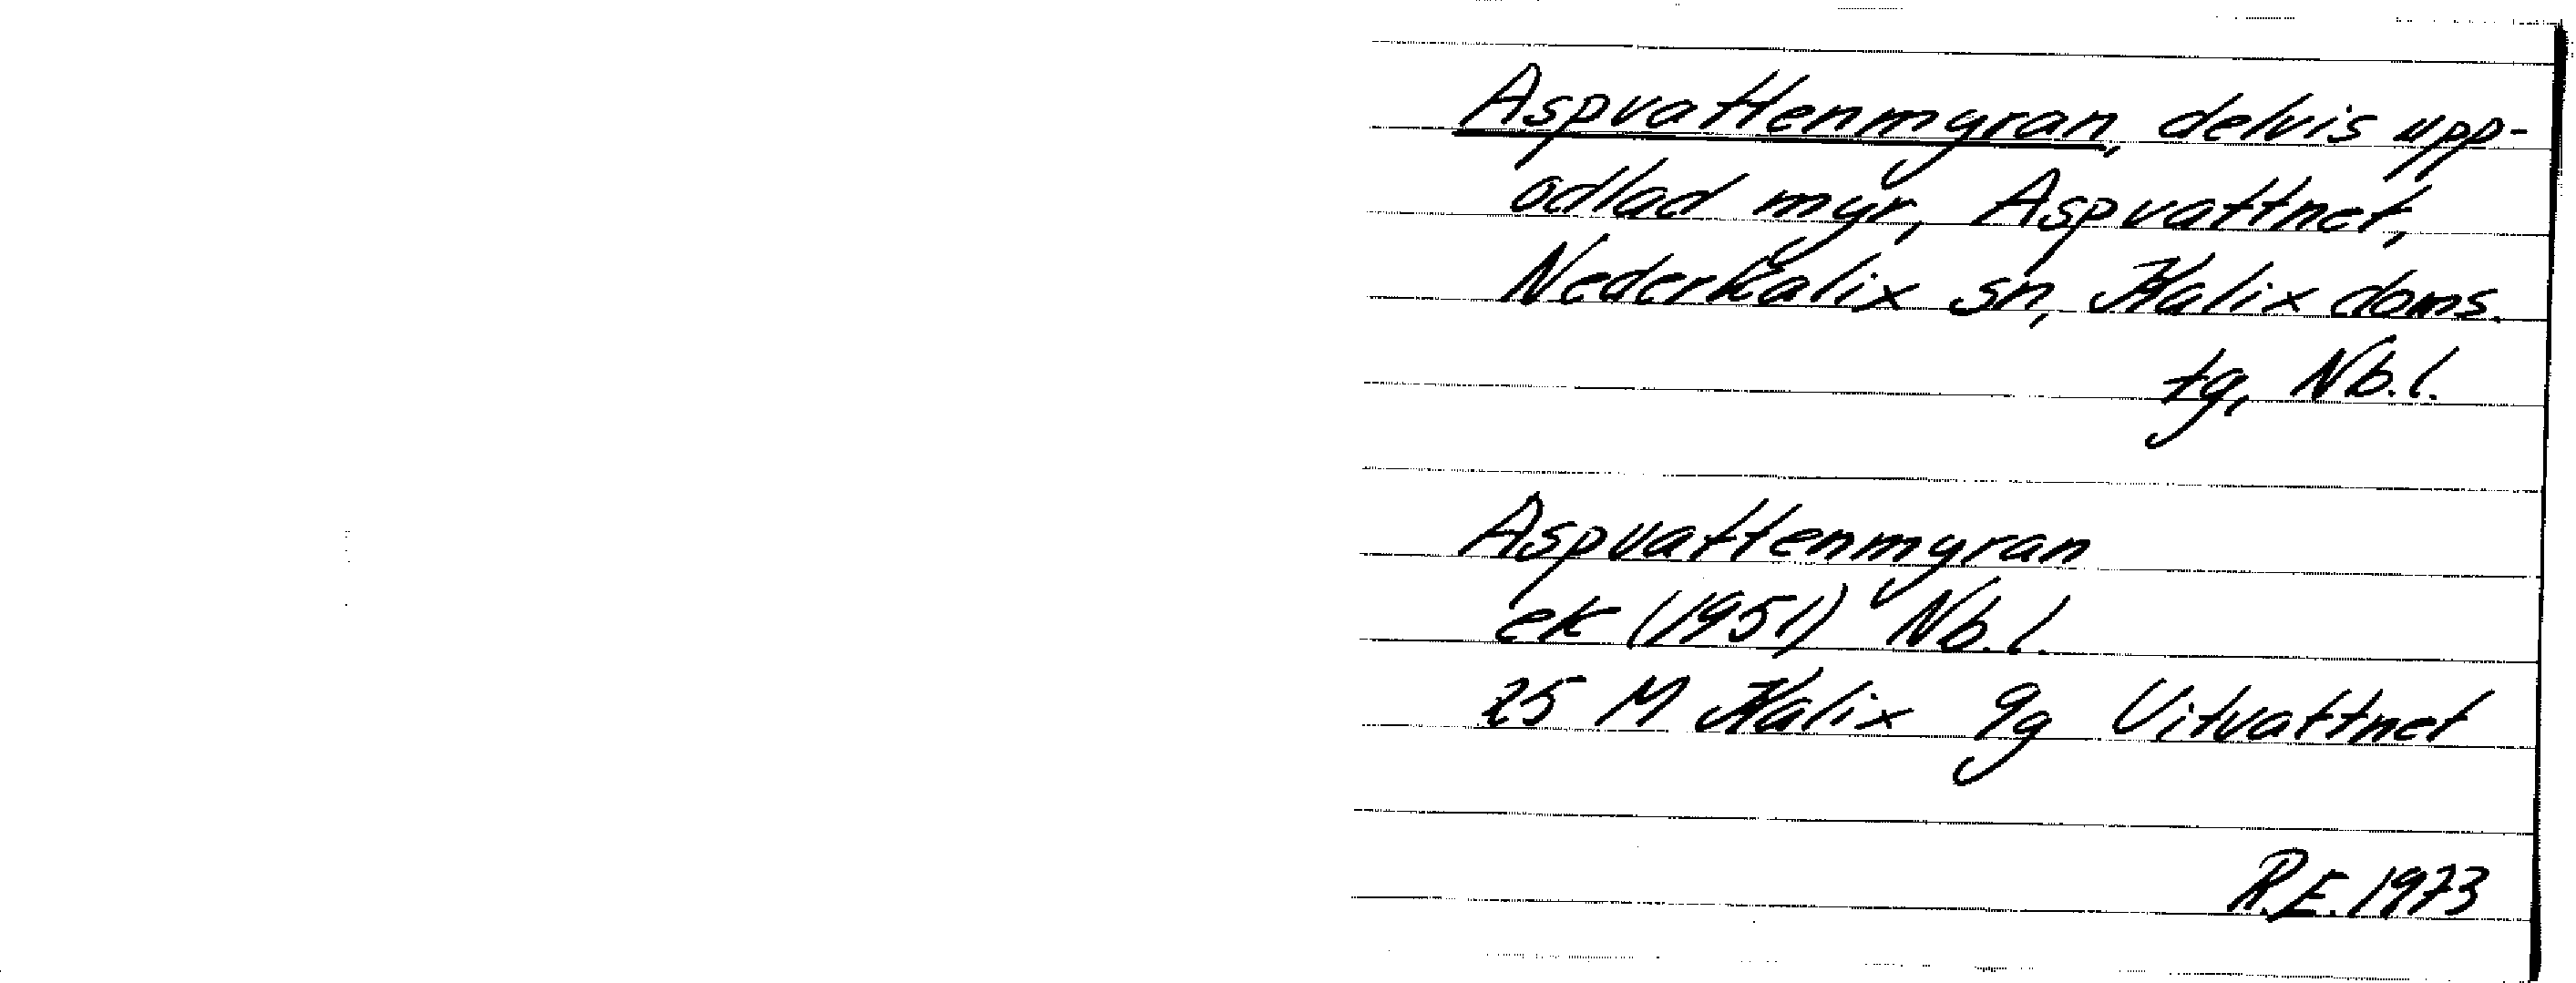 Aspvattenmyran, delvis upp-
odlad myr, Aspvattnet,
Nederkalix sn, Kalix doms.
tg, Nb.l.
Aspvattenmyran
ek (1951) Nb.l.
25 M Kalix 9g Vitvattnet
R.E. 1973